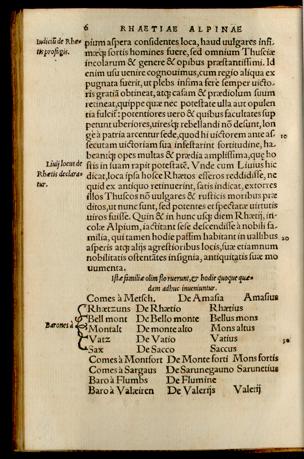 6 RHAETIAE ALPINAE
Iudiciũ de Rhæ
tis prosigie.
pium aspera considentes loca, haud uulgares infi
mæq; sortis homines fuere, sed omnium Thusciæ
incolarum & genere & opibus præstantissimi. Id
enim usu uenire cognouimus, cum regio aliqua ex
pugnata fuerit, ut plebs infima ferè semper uicto-
ris gratiã obtineat, atq; casam & prædiolum suum
retineat, quippe quæ nec potestate ulla aut opulen
tia fulcit: potentiores uero & quibus facultates sup
petunt uberiores, uiresq; rebellandi nõ desunt, lon
ge à patria arcentur sede, quod hi uictorem ante as 10
secutam uictoriam sua infestarint fortitudine, ha-
beantq; opes multas & prædia amplissima, que ho
stis in suam rapit potestatẽ. Vnde cum Liuius hic
Liuij locus de
Rhætis declara
tur.
dicat, loca ipsa hosce Rhætos efferos reddidisse, ne
quid ex antiquo retinuerint, satis indicat, extorres
illos Thuscos nõ uulgares & rusticis moribus præ
ditos, ut nunc sunt, sed potentes et spectatæ uirtutis
uiros fuisse. Quin & in hunc usq; diem Rhætij, in-
colæ Alpium, iactitant sese descendisse à nobili fa-
milia, qui tamen hodie passim habitant in uallibus 20
asperis atq; alijs agrestioribus locis, suæ etiamnum
nobilitatis ostentãtes insignia, antiquitatis suæ mo
numenta.
Istæ familiæ olim floruerunt, & hodie quoque quæ-
dam adhuc inueniuntur.
Comes à Metsch. De Amasia Amasius
Barones à
Rhætzuns De Rhætio Rhætius
Bell mont De Bello monte Bellus mons
Montalt De monte alto Mons altus
Vatz De Vatio Vatius 30
Sax De Sacco Saccus
Comes à Montfort De Monte forti Mons fortis
Comes à Sargaus De Sarunegauno Sarunetius
Baro à Flumbs De Flumine
Baro à Valæiren De Valerijs Valerij